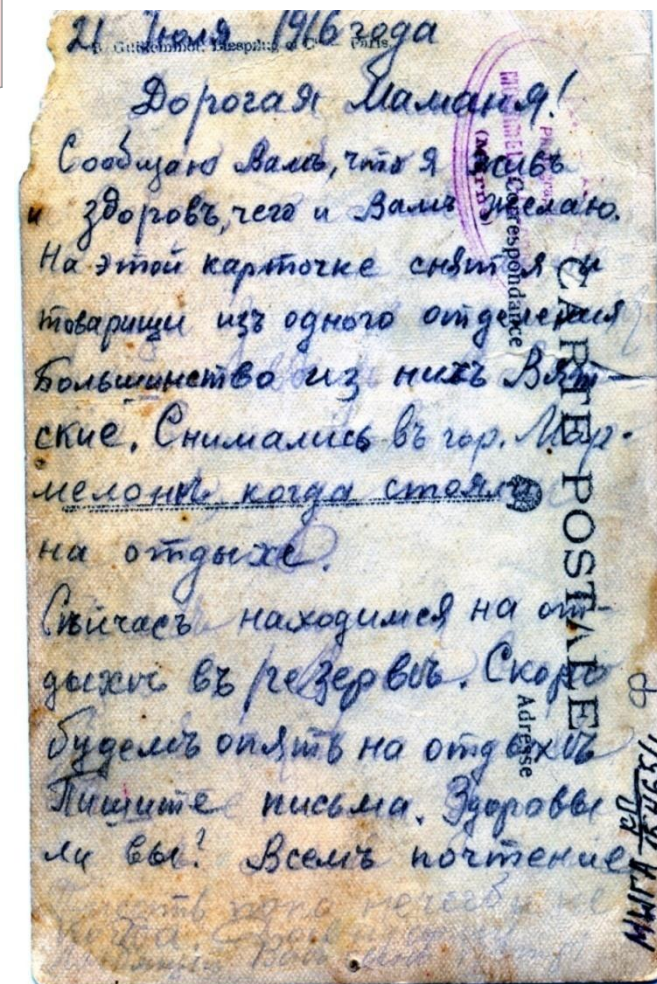 21 Июля 1916 года
Paris.
Дорогая Маманя!
Сообщаю Вамъ, что я живъ
и здоровъ, чего и Вамъ желаю.
На этой карточке снят я и
товарищи изъ одного отделения
Большинство из нихъ Вят-
ские. Снимались въ гор. Мар-
мелонъ когда стояли
на отдыхе.
Сѣйчасъ находимся на от-
дыхѣ въ резервѣ. Скоро
будемъ опять на отдыхѣ
Пишите письма. Здоровы
ли вы? Всемъ почтение
CARTE POSTALE
Correspondance
Adresse
(Marne)